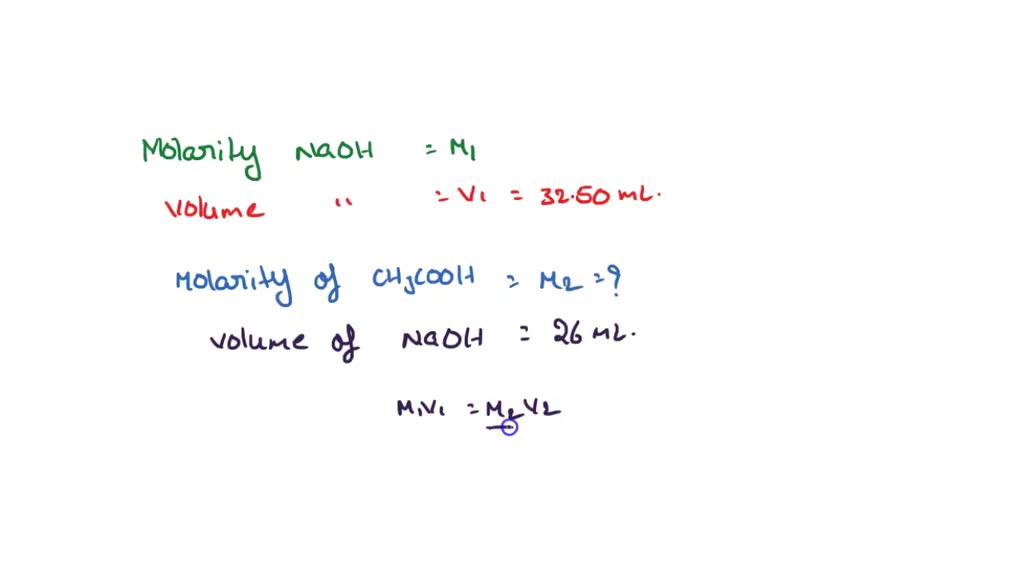 Molarity NaOH = M1
Volume " = V1 = 32.50 mL.
Molarity of CH3COOH = M2 = ?
Volume of NaOH = 26 mL.
M1V1 = M2V2